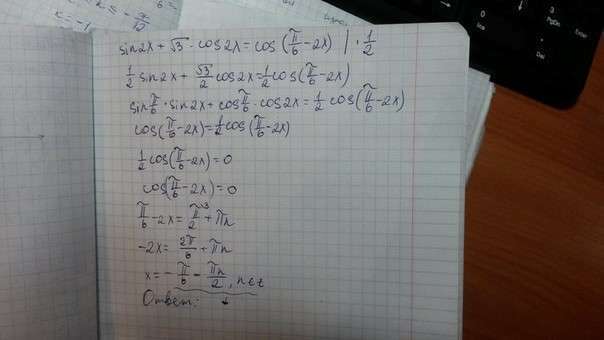 sin2x + √3 · cos2x = cos(π/6 - 2x) | · 1/2
1/2 sin2x + √3/2 cos2x = 1/2 cos(π/6 - 2x)
sin π/6 · sin2x + cos π/6 · cos2x = 1/2 cos(π/6 - 2x)
cos(π/6 - 2x) = 1/2 cos(π/6 - 2x)
1/2 cos(π/6 - 2x) = 0
cos(π/6 - 2x) = 0
π/6 - 2x = π/2 \3 + πn
-2x = 2π/6 + πn
x = - π/6 - πn/2, n ∈ Z
Ответ: